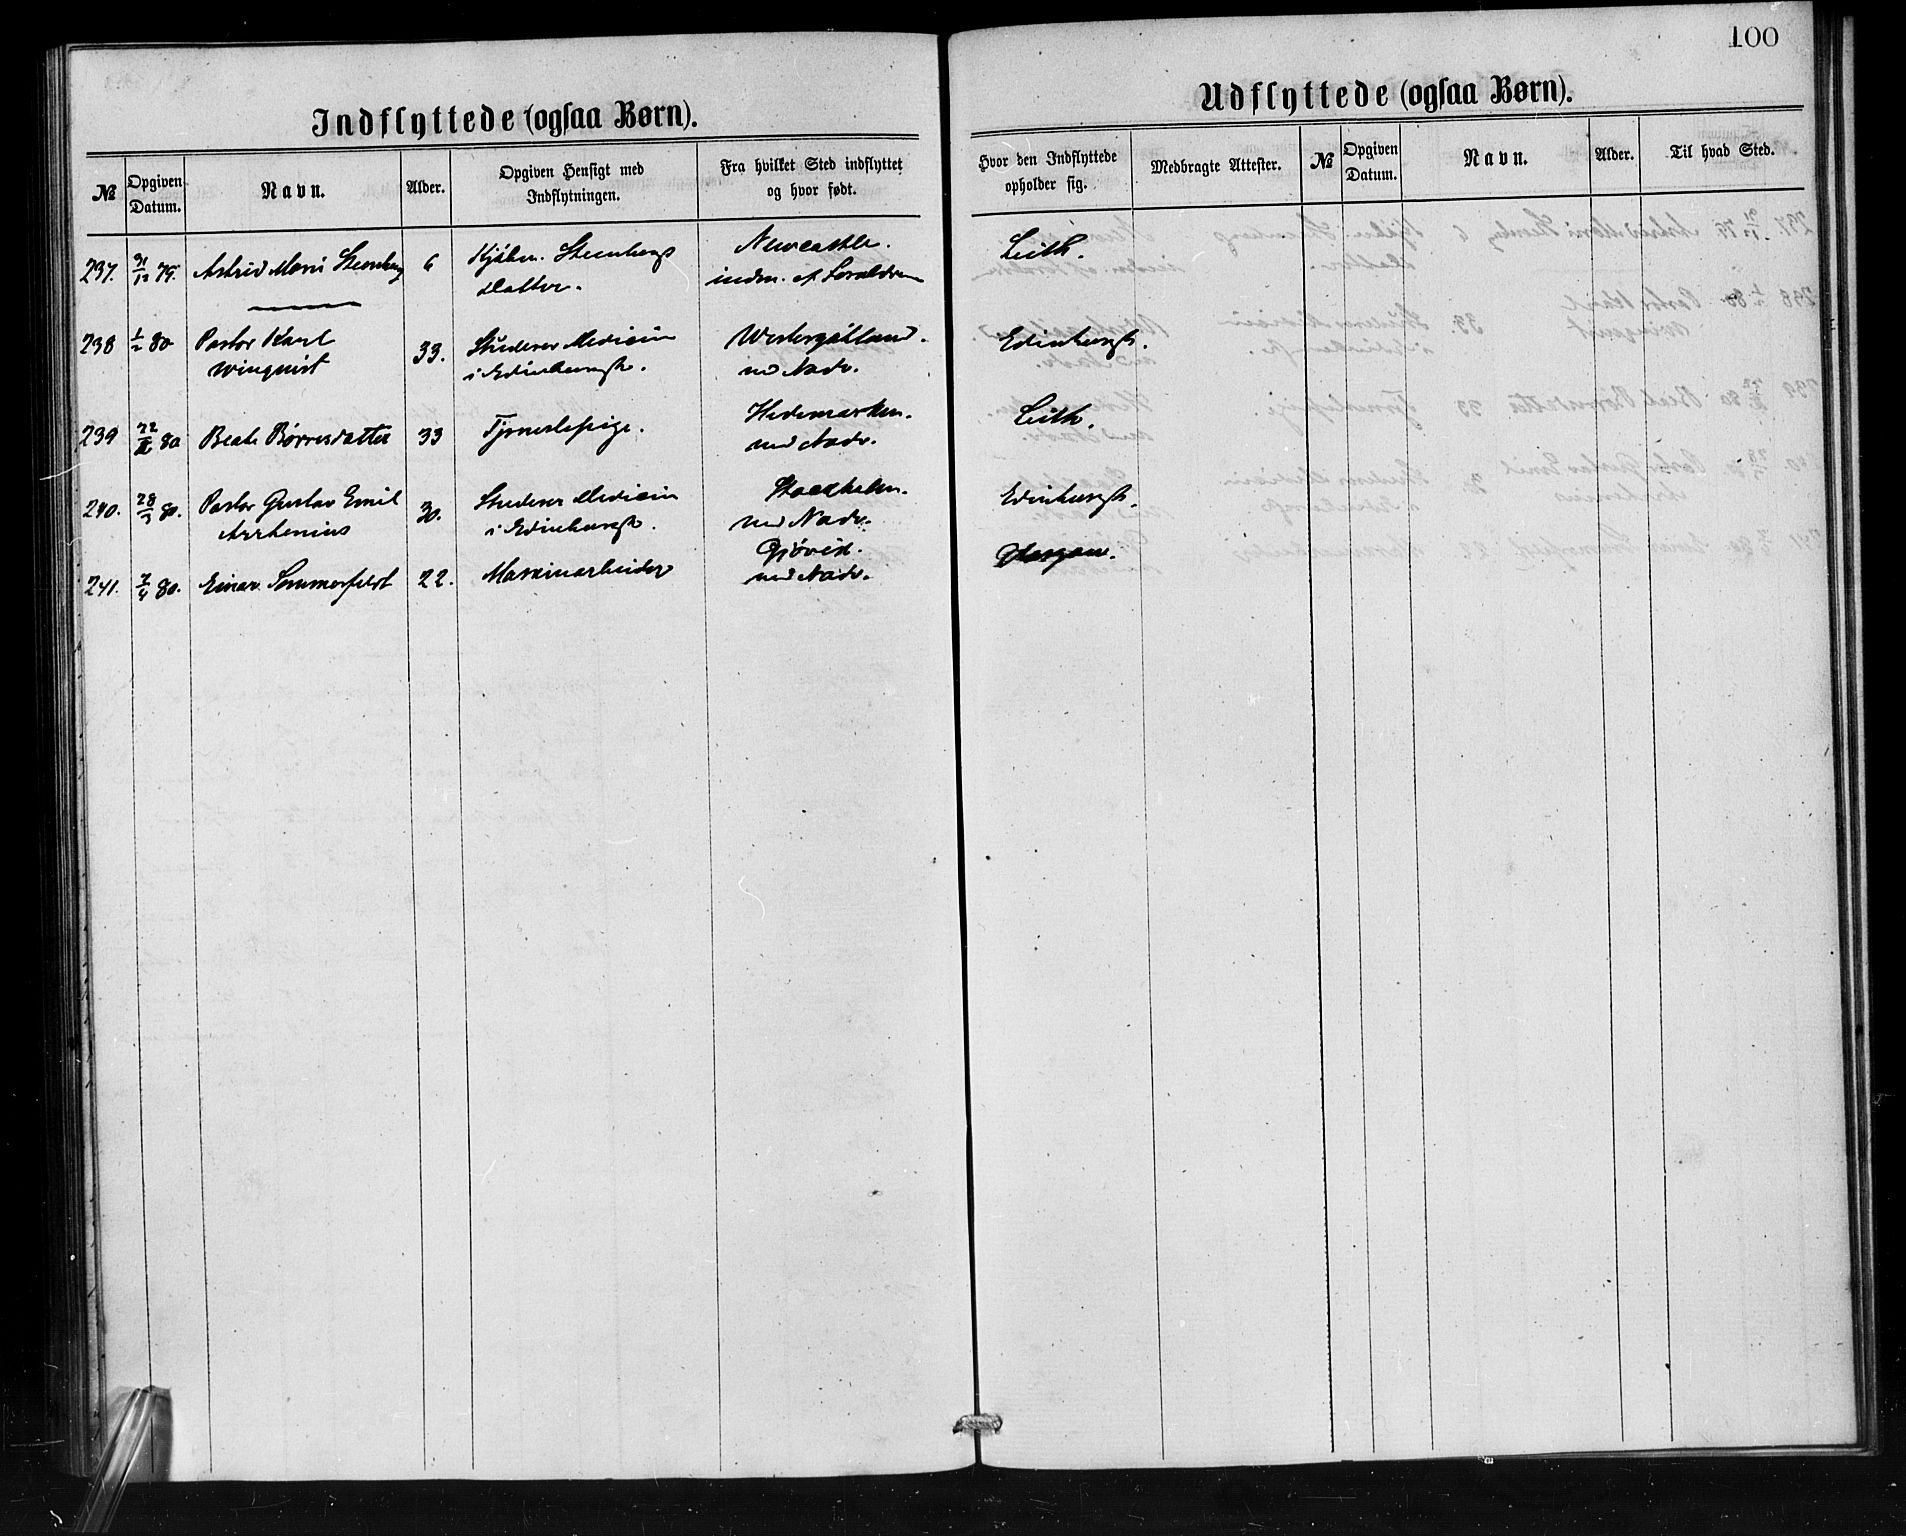 100
Indflyttede (ogsaa Børn).
Udflyttede (ogsaa Børn).
№ Opgiven Datum. Navn. Alder. Opgiven Hensigt med Indflytningen. Fra hvilket Sted indflyttet og hvor født. Hvor den Indflyttede opholder sig. Medbragte Attester. № Opgiven Datum. Navn. Alder. Til hvad Sted.
237. 31/12 79. Astrid Marie Steenberg 6 Kjøbm. Steenbergs Newcastle. Leith.
Datter. indm. af Forældrene
238 1/2 80 Pastor Karl 33. Studerer Medicin Westergötland. Edinburgh.
Winquist i Edinburgh. ud Nadv.
239 22/2 80 Beate Børresdatter 33 Tjenestepige. Hedemarken. Leith.
ud Nadv.
240. 28/3 80. Pastor Gustav Emil 30. Studerer Medicin Stockholm. Edinburgh.
Arrhenius i Edinburgh. ud Nadv.
241. 2/4 80. Einar Sommerfeldt 22. Maskinarbeider Gjøvik. Glasgow.
ud Nadv.